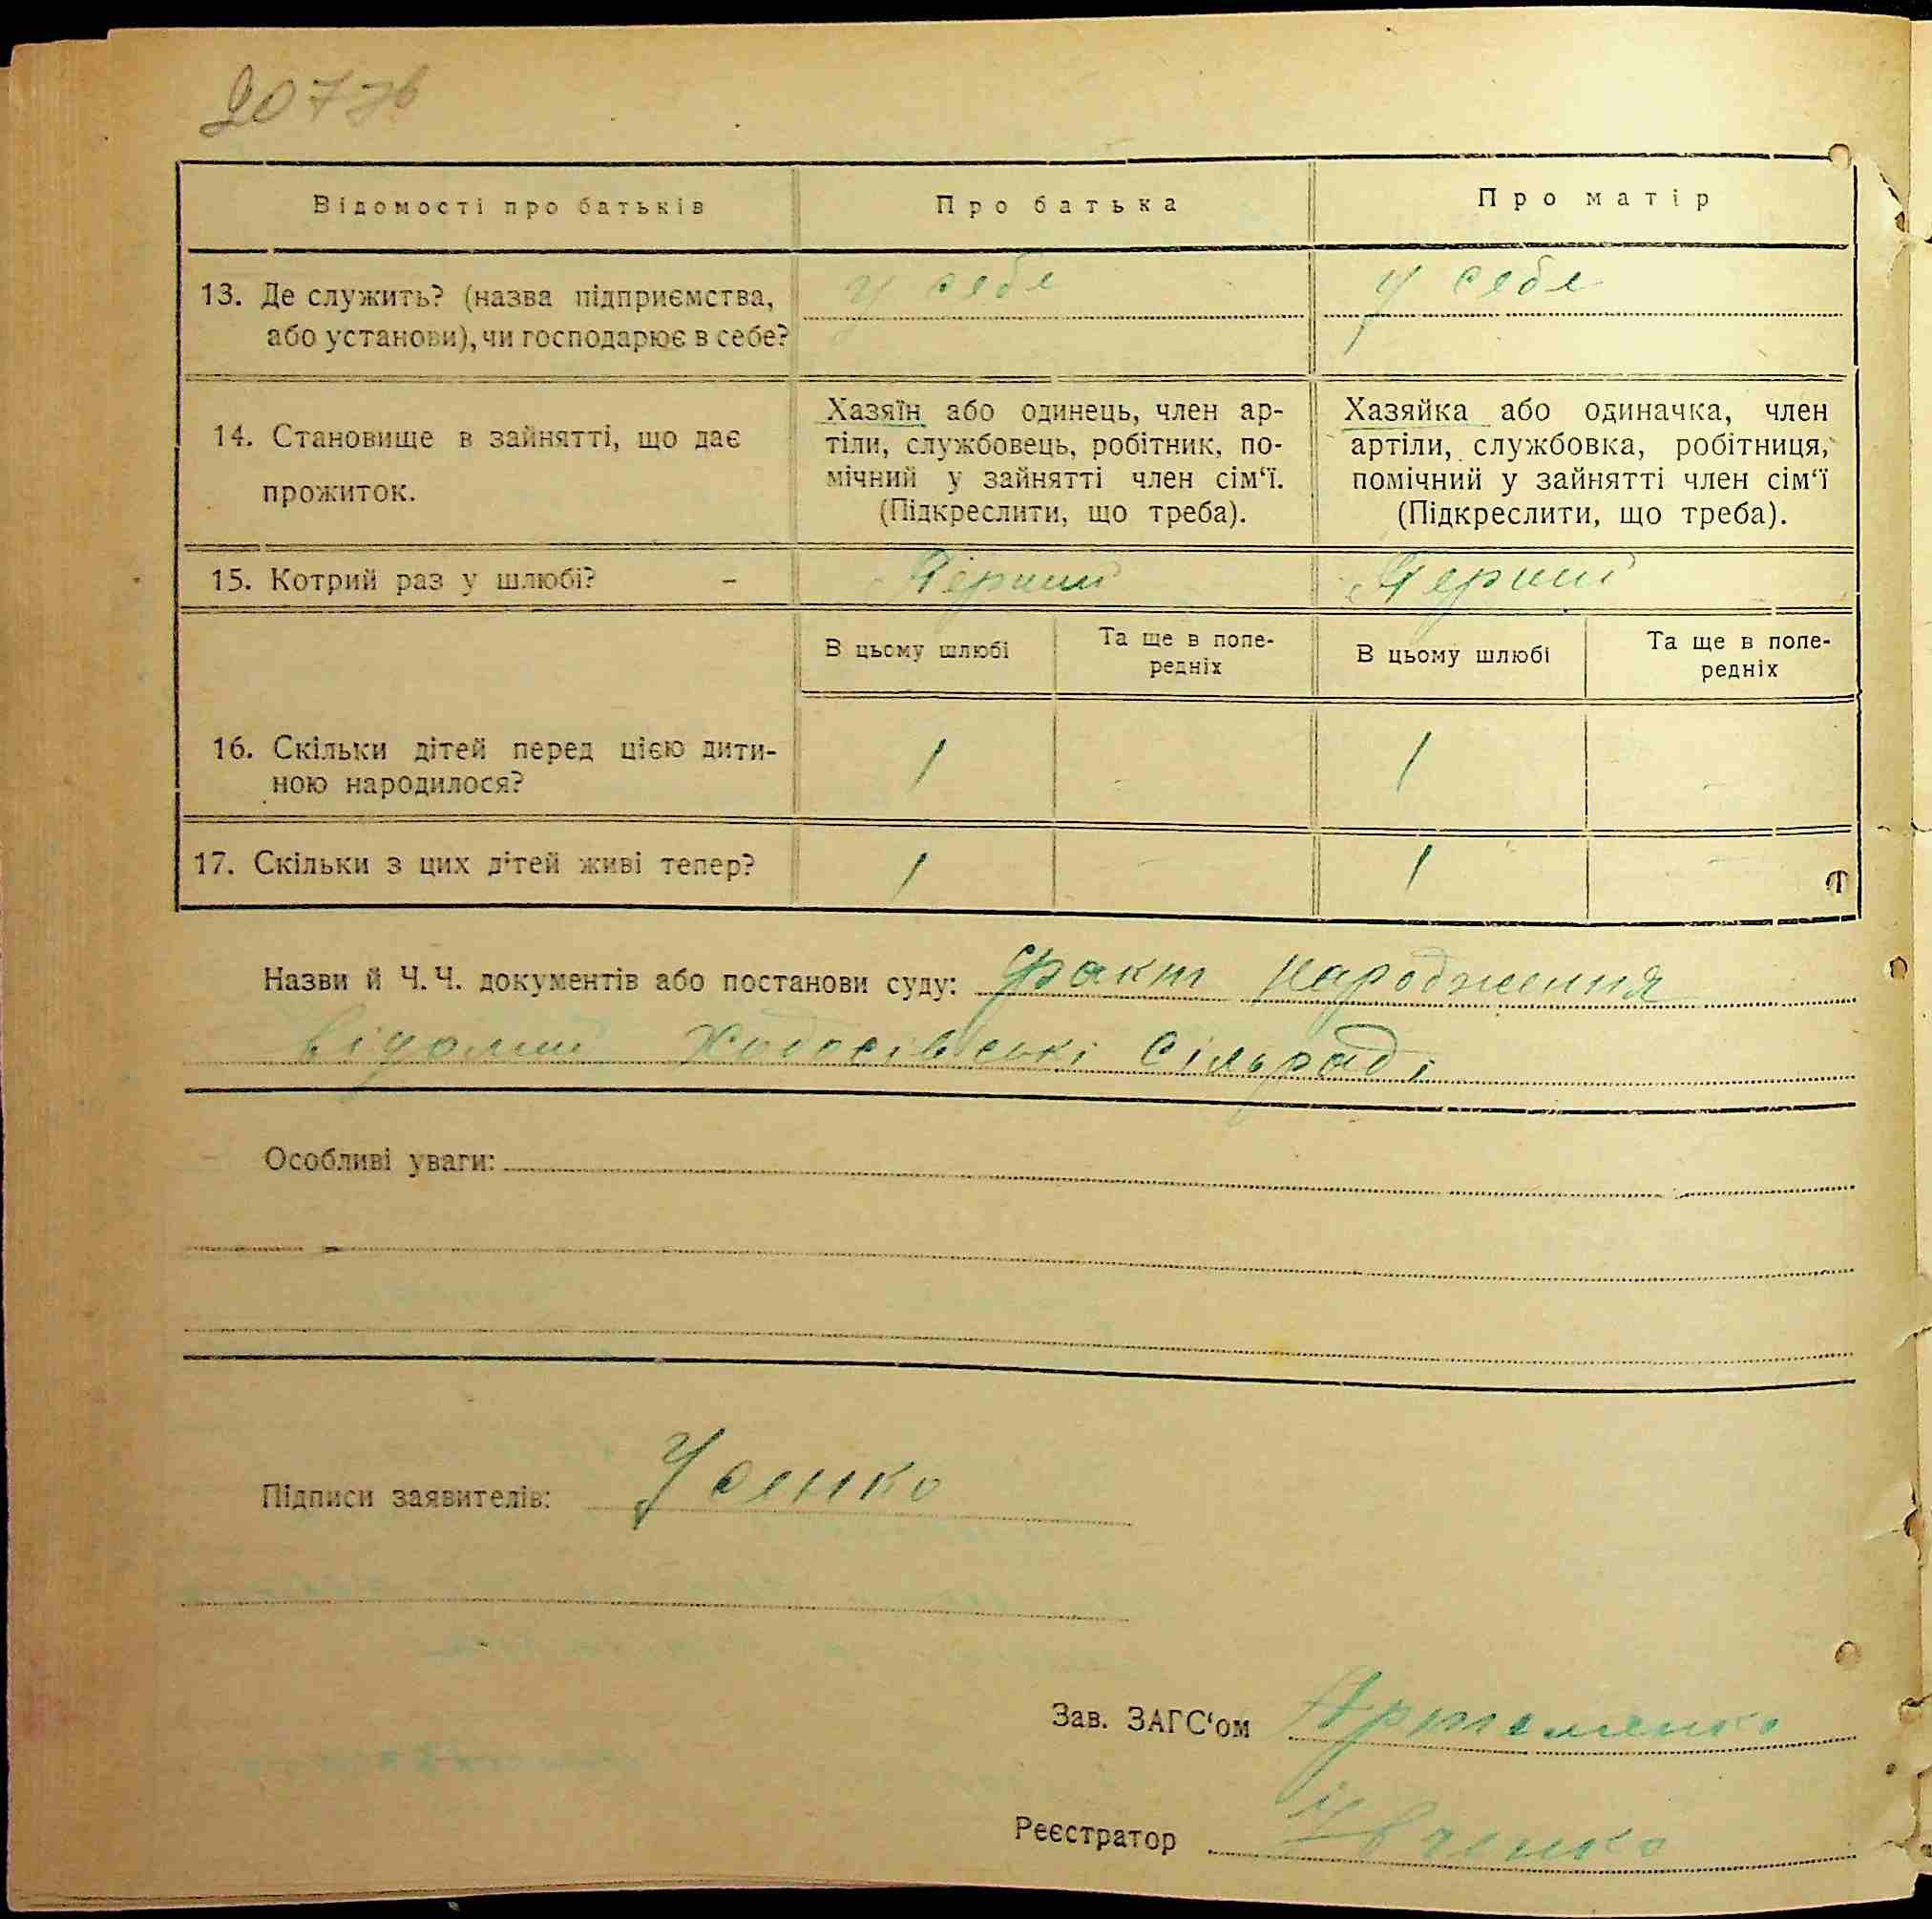 207 зв
Відомості про батьків
Про батька
Про матір
13. Де служить? (назва підприємства,
або установи), чи господарює в себе?
у себе
у себе
14. Становище в зайнятті, що дає
прожиток.
Хазяїн або одинець, член ар-
тіли, службовець, робітник, по-
мічний у зайнятті член сім‘ї.
(Підкреслити, що треба).
Хазяйка або одиначка, член
артіли, службовка, робітниця,
помічний у зайнятті член сім‘ї
(Підкреслити, що треба).
15. Котрий раз у шлюбі? –
Перший
Перший
В цьому шлюбі
Та ще в попе-
редніх
В цьому шлюбі
Та ще в попе-
редніх
16. Скільки дітей перед цією дити-
ною народилося?
1 - 1 -
17. Скільки з цих дітей живі тепер?
1 - 1 -
Назви й Ч.Ч. документів або постанови суду: факт народження
відомий Ходосівські Сільраді
Особливі уваги:
Підписи заявителів: Усенко
Зав. ЗАГС‘ом Артеменко
Реєстратор